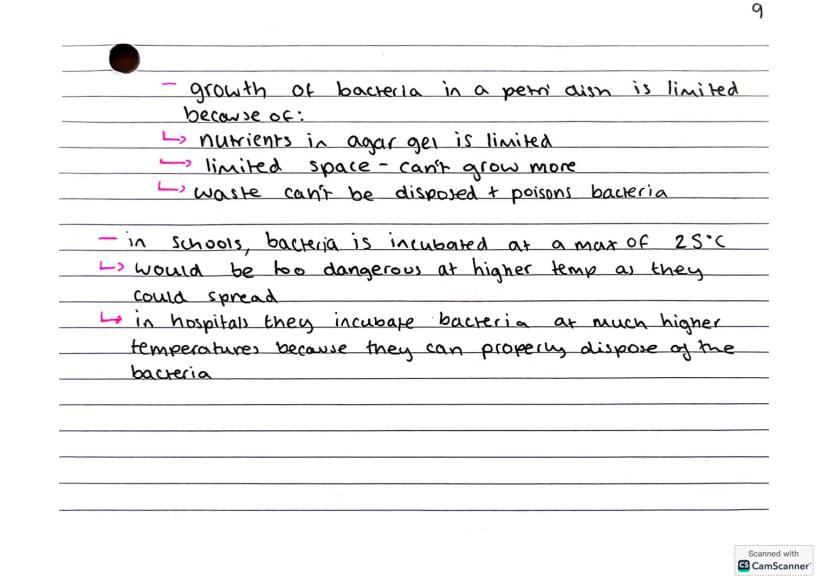 9
- growth of bacteria in a petri dish is limited
because of:
↳ nutrients in agar gel is limited
↳ limited space - can't grow more
↳ waste can't be disposed + poisons bacteria
- in schools, bacteria is incubated at a max of 25°C
↳ would be too dangerous at higher temp as they
could spread
↳ in hospitals they incubate bacteria at much higher
temperatures because they can properly dispose of the
bacteria
Scanned with
CS CamScanner